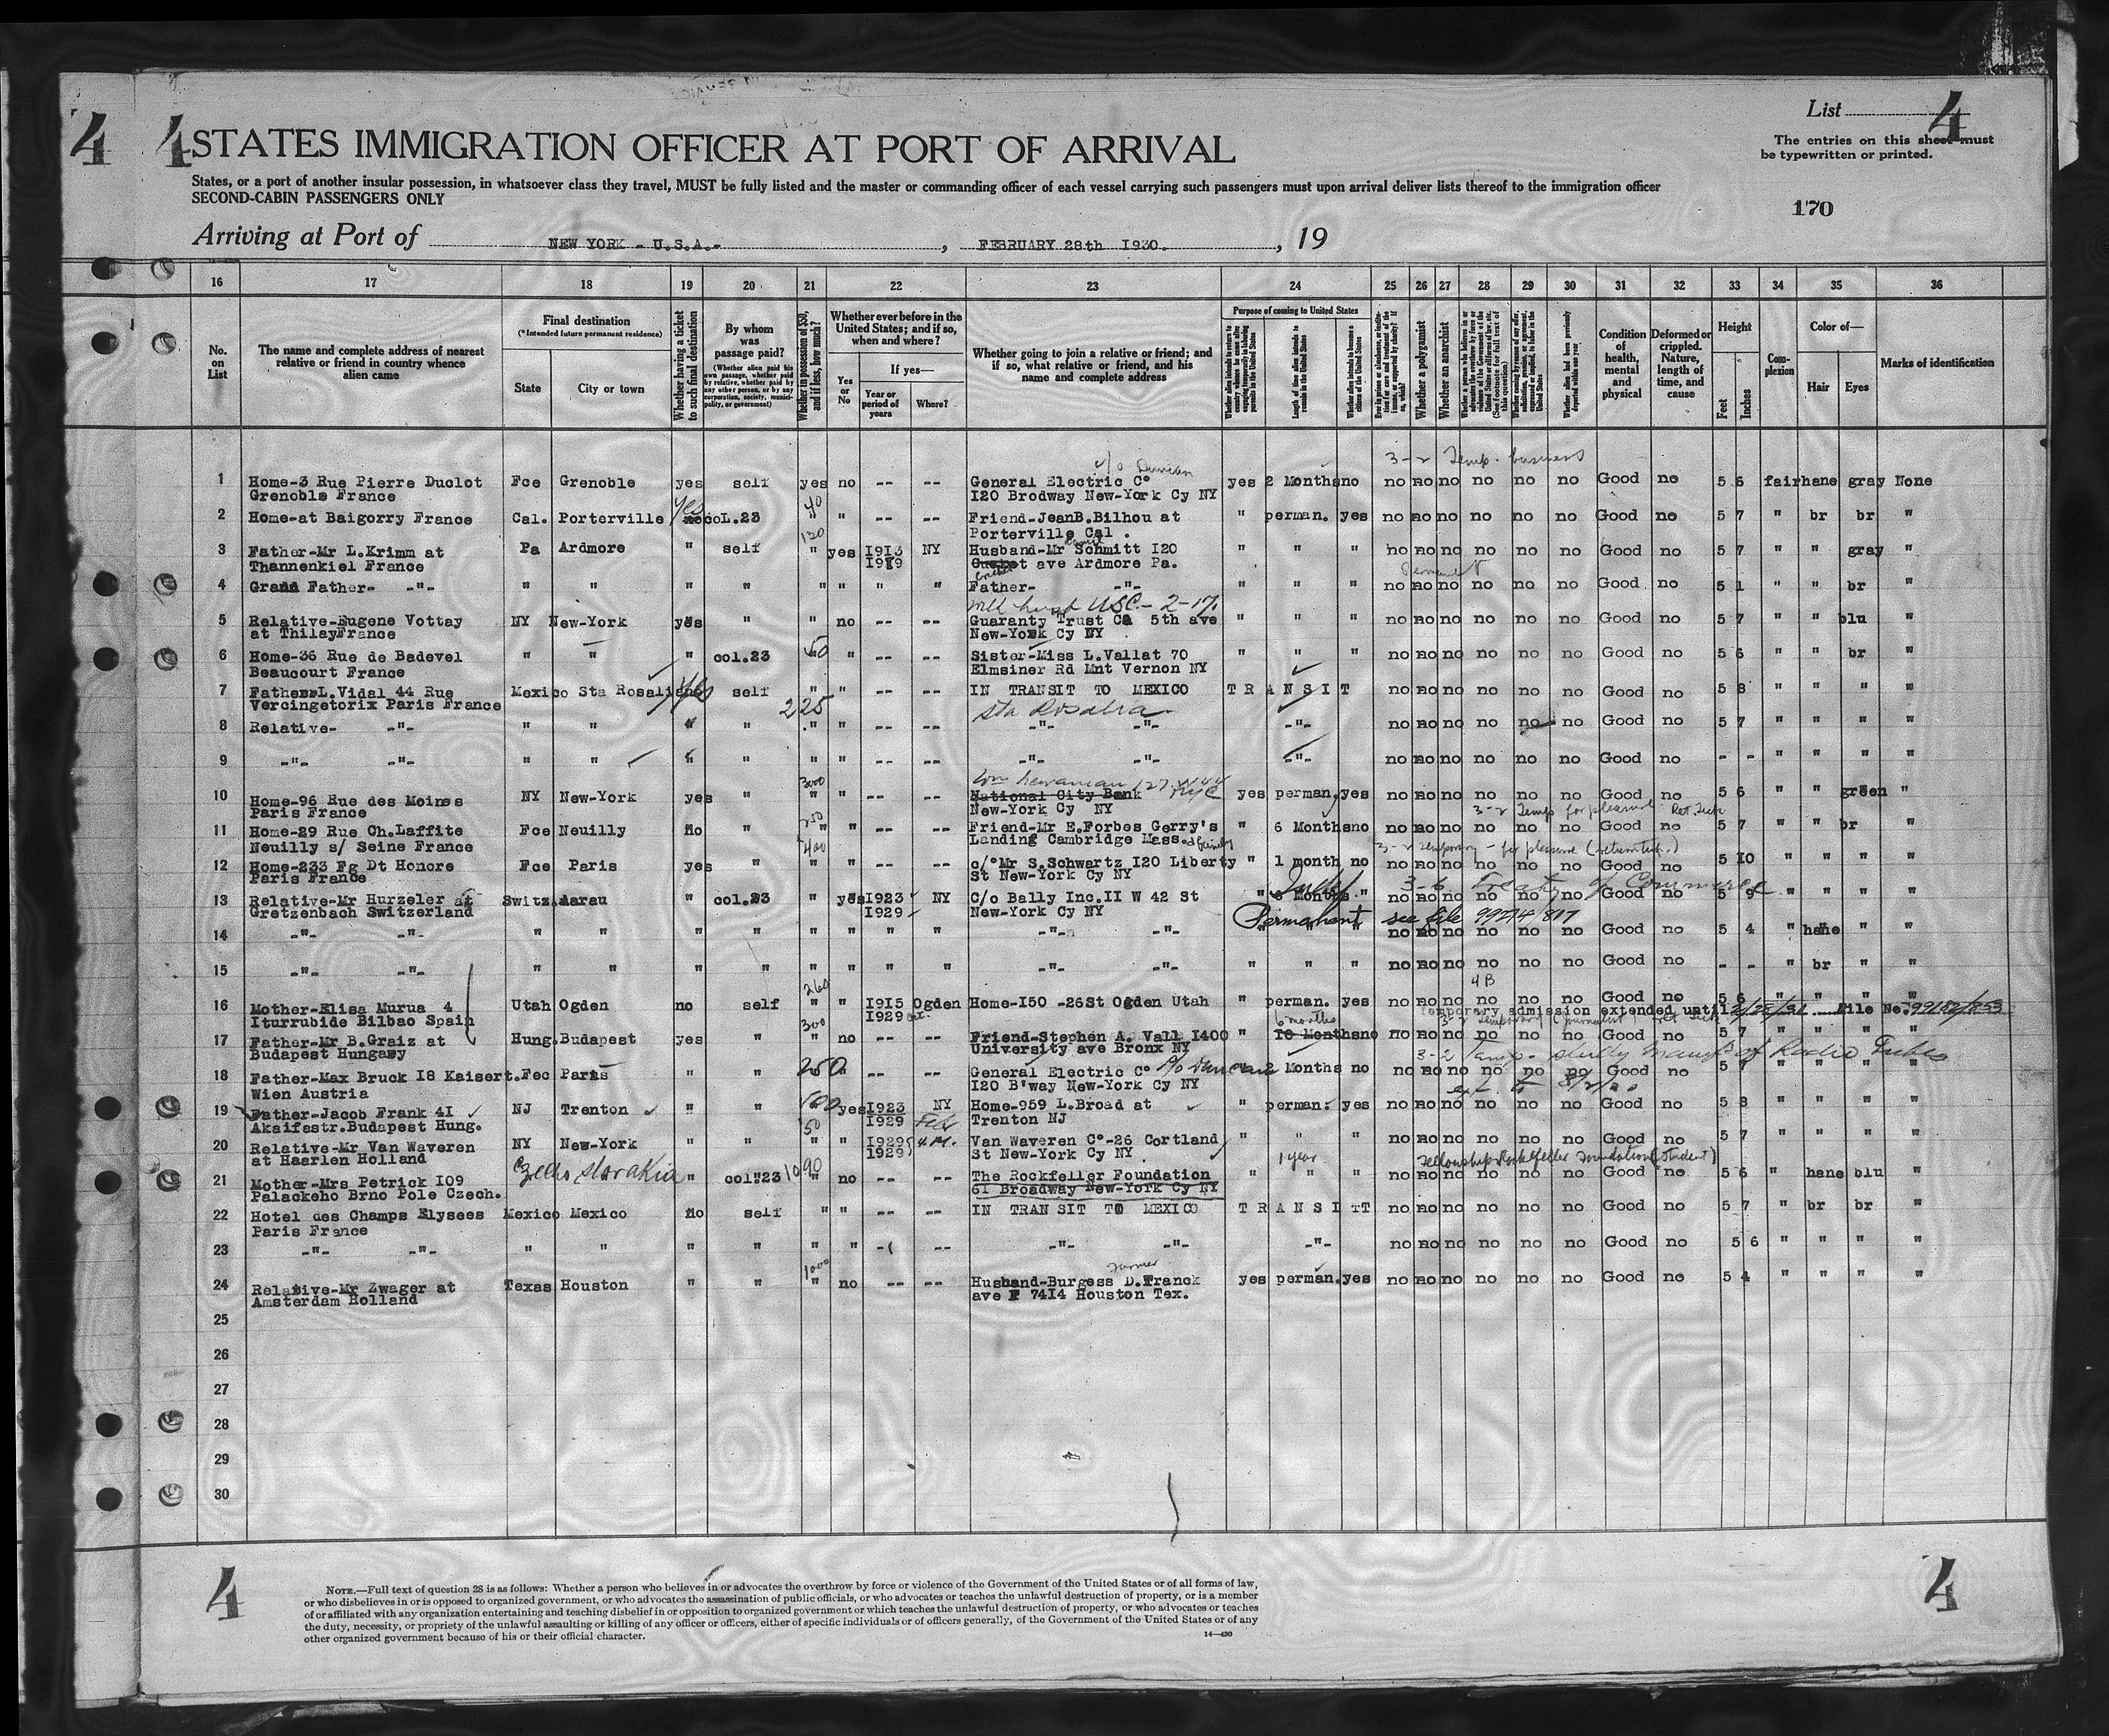 4 4 List 4
STATES IMMIGRATION OFFICER AT PORT OF ARRIVAL
The entries on this sheet must
be typewritten or printed.
States, or a port of another insular possession, in whatsoever class they travel, MUST be fully listed and the master or commanding officer of each vessel carrying such passengers must upon arrival deliver lists thereof to the immigration officer
SECOND-CABIN PASSENGERS ONLY
170
Arriving at Port of NEW YORK - U.S.A.- , FEBRUARY 28th 1930. , 19
16 17 18 19 20 21 22 23 24 25 26 27 28 29 30 31 32 33 34 35 36
No. on List
The name and complete address of nearest relative or friend in country whence alien came
Final destination
(*Intended future permanent residence)
State City or town
Whether having a ticket to such final destination
By whom was passage paid?
(Whether alien paid his own passage, whether paid by relative, whether paid by any other person, or by any corporation, society, municipality, or government)
Whether in possession of $50, and if less, how much?
Whether ever before in the United States; and if so, when and where?
Yes or No
If yes—
Year or period of years Where?
Whether going to join a relative or friend; and if so, what relative or friend, and his name and complete address
Purpose of coming to United States
Length of time alien intends to remain in the United States
Whether alien intends to become a citizen of the United States
Whether a polygamist
Whether an anarchist
Condition of health, mental and physical
Deformed or crippled. Nature, length of time, and cause
Height
Feet Inches
Complexion
Color of—
Hair Eyes
Marks of identification
3-2 Temp. business
c/o Duncan
1 Home-3 Rue Pierre Duclot Fce Grenoble yes self yes no -- -- General Electric Co yes 2 Months no no no no no no no Good no 5 6 fair hane gray None
Grenoble France I20 Brodway New-York Cy NY
yes 40
2 Home-at Baigorry France Cal. Porterville no coL.23 " " -- -- Friend-JeanB.Bilhou at " perman. yes no no no no no no Good no 5 7 " br br "
Porterville Cal .
120
3 Father-Mr L.Krimm at Pa Ardmore " self " yes 1913 NY Husband-Mr Schmitt I20 " " " no no no no no no Good no 5 7 " " gray "
Thannenkiel France 1919 ave Ardmore Pa.
4 Grand Father- -"- " " " " " " " " Father- -"- " " " no no no no no no Good no 5 1 " " br "
USC - 2-17.
5 Relative-Eugene Vottay NY New-York yes " " no -- -- Guaranty Trust Co 5th ave " " " no no no no no no Good no 5 7 " " blu "
at ThilayFrance New-York Cy NY
50
6 Home-36 Rue de Badevel " " " col.23 " -- -- Sister-Miss L.Vallat 70 " " " no no no no no no Good no 5 6 " " br "
Beaucourt France Elmsiner Rd Mnt Vernon NY
7 Father-L.Vidal 44 Rue Mexico Sta Rosalia yes self " " -- -- IN TRANSIT TO MEXICO TRANSIT no no no no no no Good no 5 8 " " " "
Vercingetorix Paris France 225 Sta Rosalia.
8 Relative- -"- " " " " " " -- -- -"- -"- -"- no no no no no no Good no 5 7 " " " "
9 -"- -"- " " " " " " -- -- -"- -"- -"- no no no no no no Good no - - " " " "
3000
10 Home-96 Rue des Moines NY New-York yes " " " -- -- National City Bank yes perman. yes no no no no no no Good no 5 6 " " green "
Paris France New-York Cy NY
3-2 Temp for pleasure Ret. Tick
250
11 Home-29 Rue Ch.Laffite Fce Neuilly no " " " -- -- Friend-Mr E.Forbes Gerry's " 6 Months no no no no no no no Good no 5 7 " " br "
Neuilly s/ Seine France Landing Cambridge Mass
400 3-2 Temporary - for pleasure (return tick.)
12 Home-233 Fg Dt Honore Fce Paris yes " " " -- -- c/o Mr S.Schwartz I20 Liberty " 1 month no no no no no no no Good no 5 10 " " " "
Paris France St New-York Cy NY
3-6 Treaty of Commerce
13 Relative-Mr Hurzeler at Switz. Aarau " col.23 " yes 1923 NY C/o Bally Inc.II W 42 St " 6 Months " no no no no no no Good no 5 9 " " " "
Gretzenbach Switzerland 1929 New-York Cy NY
Permanent see file 99214/817
14 -"- -"- " " " " " " " " -"- -"- " " " no no no no no no Good no 5 4 " hane " "
15 -"- -"- " " " " " " " " -"- -"- " " " no no no no no no Good no - - " br " "
260 4B
16 Mother-Elisa Murua 4 Utah Ogden no self " " 1915 Ogden Home-I50 -26St Ogden Utah " perman. yes no no no no no no Good no 5 6 " " " "
Iturrubide Bilbao Spain 1929
Temporary admission extended until 2/28/31 File No. 99182/853
300 6 months
17 Father-Mr B.Graiz at Hung. Budapest yes " " no -- -- Friend-Stephen A. Vall I400 " 10 Months no no no no no no no Good no 5 7 " " " "
Budapest Hungary University ave Bronx NY
3-2 Temp. study manuf. of Radio Tubes
250
18 Father-Max Bruck I8 Kaisert. Fec Paris " " " -- -- General Electric Co c/o Duncan 2 Months no no no no no no no Good no 5 7 " " " "
Wien Austria I20 B'way New-York Cy NY
19 Father-Jacob Frank 4I NJ Trenton " " 600 yes 1923 NY Home-959 L.Broad at " perman. yes no no no no no no Good no 5 8 " " " "
Akaifastr.Budapest Hung. 1929 Trenton NJ
50
20 Relative-Mr Van Waveren NY New-York " " " " 1929 4 M. Van Waveren Co-26 Cortland " " " no no no no no no Good no 5 7 " " " "
at Haarlen Holland 1929 St New-York Cy NY
1 year Fellowship Rockefeller Foundation (Student)
21 Mother-Mrs Petrick I09 Czecho slovakia " col"23 1090 " no -- -- The Rockfeller Foundation " " " no no no no no no Good no 5 6 " hane blu "
Palackeho Brno Pole Czech. 61 Broadway New-York Cy NY
22 Hotel des Champs Elysees Mexico Mexico no self " " -- -- IN TRANSIT TO MEXICO TRANSIT no no no no no no Good no 5 7 " br br "
Paris France
23 -"- -"- " " " " " " -- -- -"- -"- -"- no no no no no no Good no 5 6 " " " "
1000
24 Relative-Mr Zwager at Texas Houston " " " no -- -- Husband-Burgess D.Franck yes perman. yes no no no no no no Good no 5 4 " " " "
Amsterdam Holland ave F 74I4 Houston Tex.
25
26
27
28
29
30
4 4
NOTE.—Full text of question 28 is as follows: Whether a person who believes in or advocates the overthrow by force or violence of the Government of the United States or of all forms of law,
or who disbelieves in or is opposed to organized government, or who advocates the assassination of public officials, or who advocates or teaches the unlawful destruction of property, or is a member
of or affiliated with any organization entertaining and teaching disbelief in or opposition to organized government or which teaches the unlawful destruction of property, or who advocates or teaches
the duty, necessity, or propriety of the unlawful assaulting or killing of any officer or officers, either of specific individuals or of officers generally, of the Government of the United States or of any
other organized government because of his or their official character.
14—430